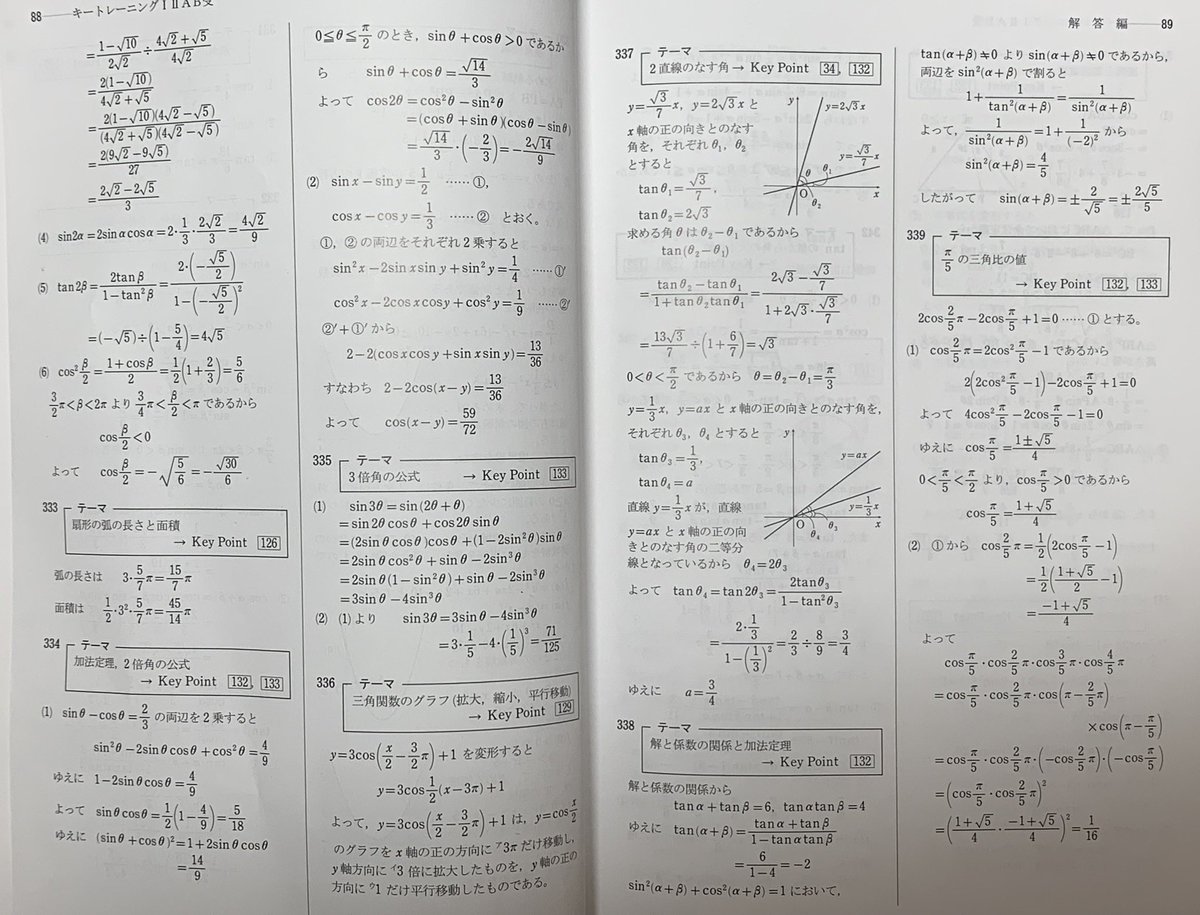 88 キートレーニングⅠⅡAB受
=(1-√10)/(2√2)÷(4√2+√5)/(4√2)
=2(1-√10)/(4√2+√5)
=2(1-√10)(4√2-√5)/((4√2+√5)(4√2-√5))
=2(9√2-9√5)/27
=(2√2-2√5)/3
(4) sin2α=2sinαcosα=2・1/3・2√2/3=4√2/9
(5) tan2β=2tanβ/(1-tan²β)=2・(-√5/2)/(1-(-√5/2)²)
=(-√5)÷(1-5/4)=4√5
(6) cos²β/2=(1+cosβ)/2=1/2(1+2/3)=5/6
3/2π<β<2π より 3/4π<β/2<π であるから
cosβ/2<0
よって cosβ/2=-√(5/6)=-√30/6
333 テーマ
扇形の弧の長さと面積
→ Key Point 126
弧の長さは 3・5/7π=15/7π
面積は 1/2・3²・5/7π=45/14π
334 テーマ
加法定理，2倍角の公式
→ Key Point 132, 133
(1) sinθ-cosθ=2/3 の両辺を2乗すると
sin²θ-2sinθcosθ+cos²θ=4/9
ゆえに 1-2sinθcosθ=4/9
よって sinθcosθ=1/2(1-4/9)=5/18
ゆえに (sinθ+cosθ)²=1+2sinθcosθ
=14/9
0≦θ≦π/2 のとき，sinθ+cosθ>0 であるか
ら sinθ+cosθ=√14/3
よって cos2θ=cos²θ-sin²θ
=(cosθ+sinθ)(cosθ-sinθ)
=√14/3・(-2/3)=-2√14/9
(2) sinx-siny=1/2 ……①，
cosx-cosy=1/3 ……② とおく。
①，②の両辺をそれぞれ2乗すると
sin²x-2sinxsiny+sin²y=1/4 ……①′
cos²x-2cosxcosy+cos²y=1/9 ……②′
②′+①′から
2-2(cosxcosy+sinxsiny)=13/36
すなわち 2-2cos(x-y)=13/36
よって cos(x-y)=59/72
335 テーマ
3倍角の公式 → Key Point 133
(1) sin3θ=sin(2θ+θ)
=sin2θcosθ+cos2θsinθ
=(2sinθcosθ)cosθ+(1-2sin²θ)sinθ
=2sinθcos²θ+sinθ-2sin³θ
=2sinθ(1-sin²θ)+sinθ-2sin³θ
=3sinθ-4sin³θ
(2) (1)より sin3θ=3sinθ-4sin³θ
=3・1/5-4・(1/5)³=71/125
336 テーマ
三角関数のグラフ(拡大，縮小，平行移動)
→ Key Point 129
y=3cos(x/2-3/2π)+1 を変形すると
y=3cos1/2(x-3π)+1
よって，y=3cos(x/2-3/2π)+1 は，y=cosx/2
のグラフを x 軸の正の方向に ア3π だけ移動し，
y 軸方向に イ3 倍に拡大したものを，y 軸の正の
方向に ウ1 だけ平行移動したものである。
解答編 89
337 テーマ
2直線のなす角 → Key Point 34, 132
y=√3/7x，y=2√3x と
x 軸の正の向きとのなす
角を，それぞれ θ₁，θ₂
とすると
tanθ₁=√3/7，
tanθ₂=2√3
y
y=2√3x
y=√3/7x
θ
θ₁
O
θ₂
x
求める角 θ は θ₂-θ₁ であるから
tan(θ₂-θ₁)
=(tanθ₂-tanθ₁)/(1+tanθ₂tanθ₁)=(2√3-√3/7)/(1+2√3・√3/7)
=13√3/7÷(1+6/7)=√3
0<θ<π/2 であるから θ=θ₂-θ₁=π/3
y=1/3x，y=ax と x 軸の正の向きとのなす角を，
それぞれ θ₃，θ₄ とすると
tanθ₃=1/3，
tanθ₄=a
直線 y=1/3x が，直線
y=ax と x 軸の正の向
きとのなす角の二等分
線となっているから θ₄=2θ₃
y
y=ax
y=1/3x
O
θ₃
θ₄
x
よって tanθ₄=tan2θ₃=2tanθ₃/(1-tan²θ₃)
=(2・1/3)/(1-(1/3)²)=2/3÷8/9=3/4
ゆえに a=3/4
338 テーマ
解と係数の関係と加法定理
→ Key Point 132
解と係数の関係から
tanα+tanβ=6，tanαtanβ=4
ゆえに tan(α+β)=(tanα+tanβ)/(1-tanαtanβ)
=6/(1-4)=-2
sin²(α+β)+cos²(α+β)=1 において，
tan(α+β)≠0 より sin(α+β)≠0 であるから，
両辺を sin²(α+β) で割ると
1+1/tan²(α+β)=1/sin²(α+β)
よって，1/sin²(α+β)=1+1/(-2)² から
sin²(α+β)=4/5
したがって sin(α+β)=±2/√5=±2√5/5
339 テーマ
π/5 の三角比の値
→ Key Point 132, 133
2cos2/5π-2cosπ/5+1=0 ……① とする。
(1) cos2/5π=2cos²π/5-1 であるから
2(2cos²π/5-1)-2cosπ/5+1=0
よって 4cos²π/5-2cosπ/5-1=0
ゆえに cosπ/5=(1±√5)/4
0<π/5<π/2 より，cosπ/5>0 であるから
cosπ/5=(1+√5)/4
(2) ①から cos2/5π=1/2(2cosπ/5-1)
=1/2((1+√5)/2-1)
=(-1+√5)/4
よって
cosπ/5・cos2/5π・cos3/5π・cos4/5π
=cosπ/5・cos2/5π・cos(π-2/5π)
×cos(π-π/5)
=cosπ/5・cos2/5π・(-cos2/5π)・(-cosπ/5)
=(cosπ/5・cos2/5π)²
=((1+√5)/4・(-1+√5)/4)²=1/16